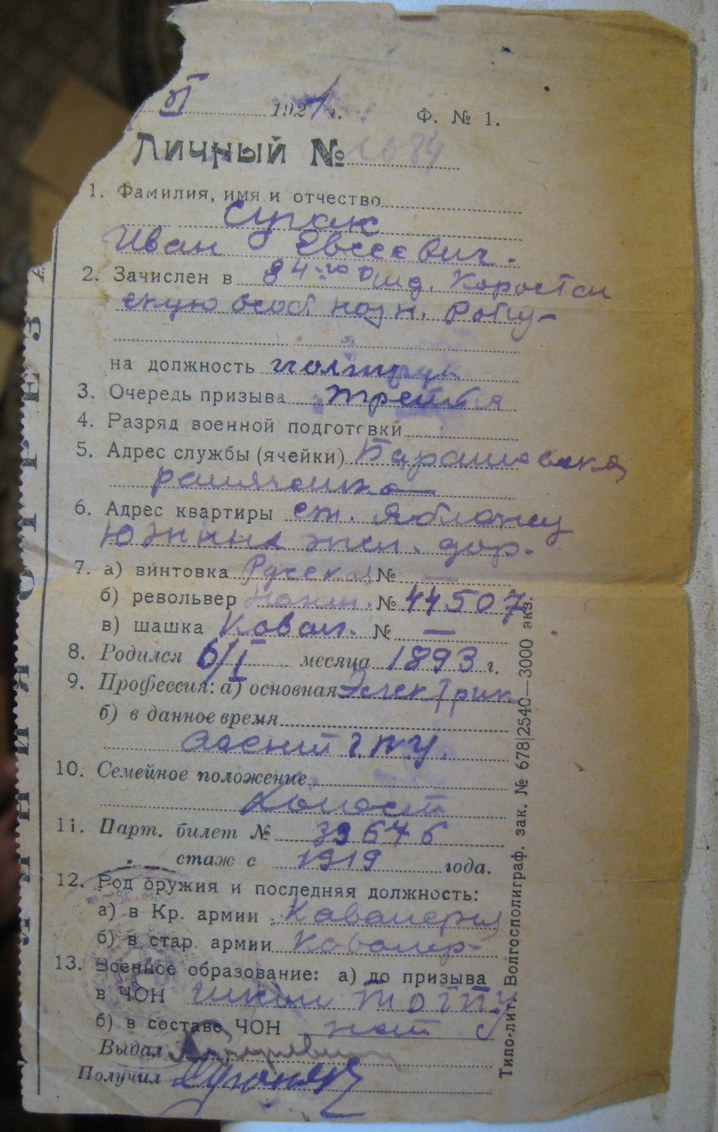 VI 1924 г. Ф. № 1.
Личный № 1684
1. Фамилия, имя и отчество
Сугак
Иван Евсеевич.
2. Зачислен в 84-го Коростен
скую особ назн. Роту
на должность политрук
3. Очередь призыва третья
4. Разряд военной подготовки
5. Адрес службы (ячейки)
6. Адрес квартиры ст. Яблонец
Южных жел. дор.
7. а) винтовка Русская № —
б) револьвер Наган. № 44507
в) шашка Кавал. № —
8. Родился 6/I месяца 1893 г.
9. Профессия: а) основная Электрик
б) в данное время
ГПУ.
10. Семейное положение
Холост
11. Парт. билет № 39676
„ стаж с 1919 года.
12. Род оружия и последняя должность:
а) в Кр. армии Кавалерия
б) в стар. армии Кавалер-
13. Военное образование: а) до призыва
в ЧОН
б) в составе ЧОН нет
Выдал
Получил
Типо-лит. Волгосполиграф. зак. № 678|2540—3000 экз.
ЛИНИЯ ОТРЕЗА